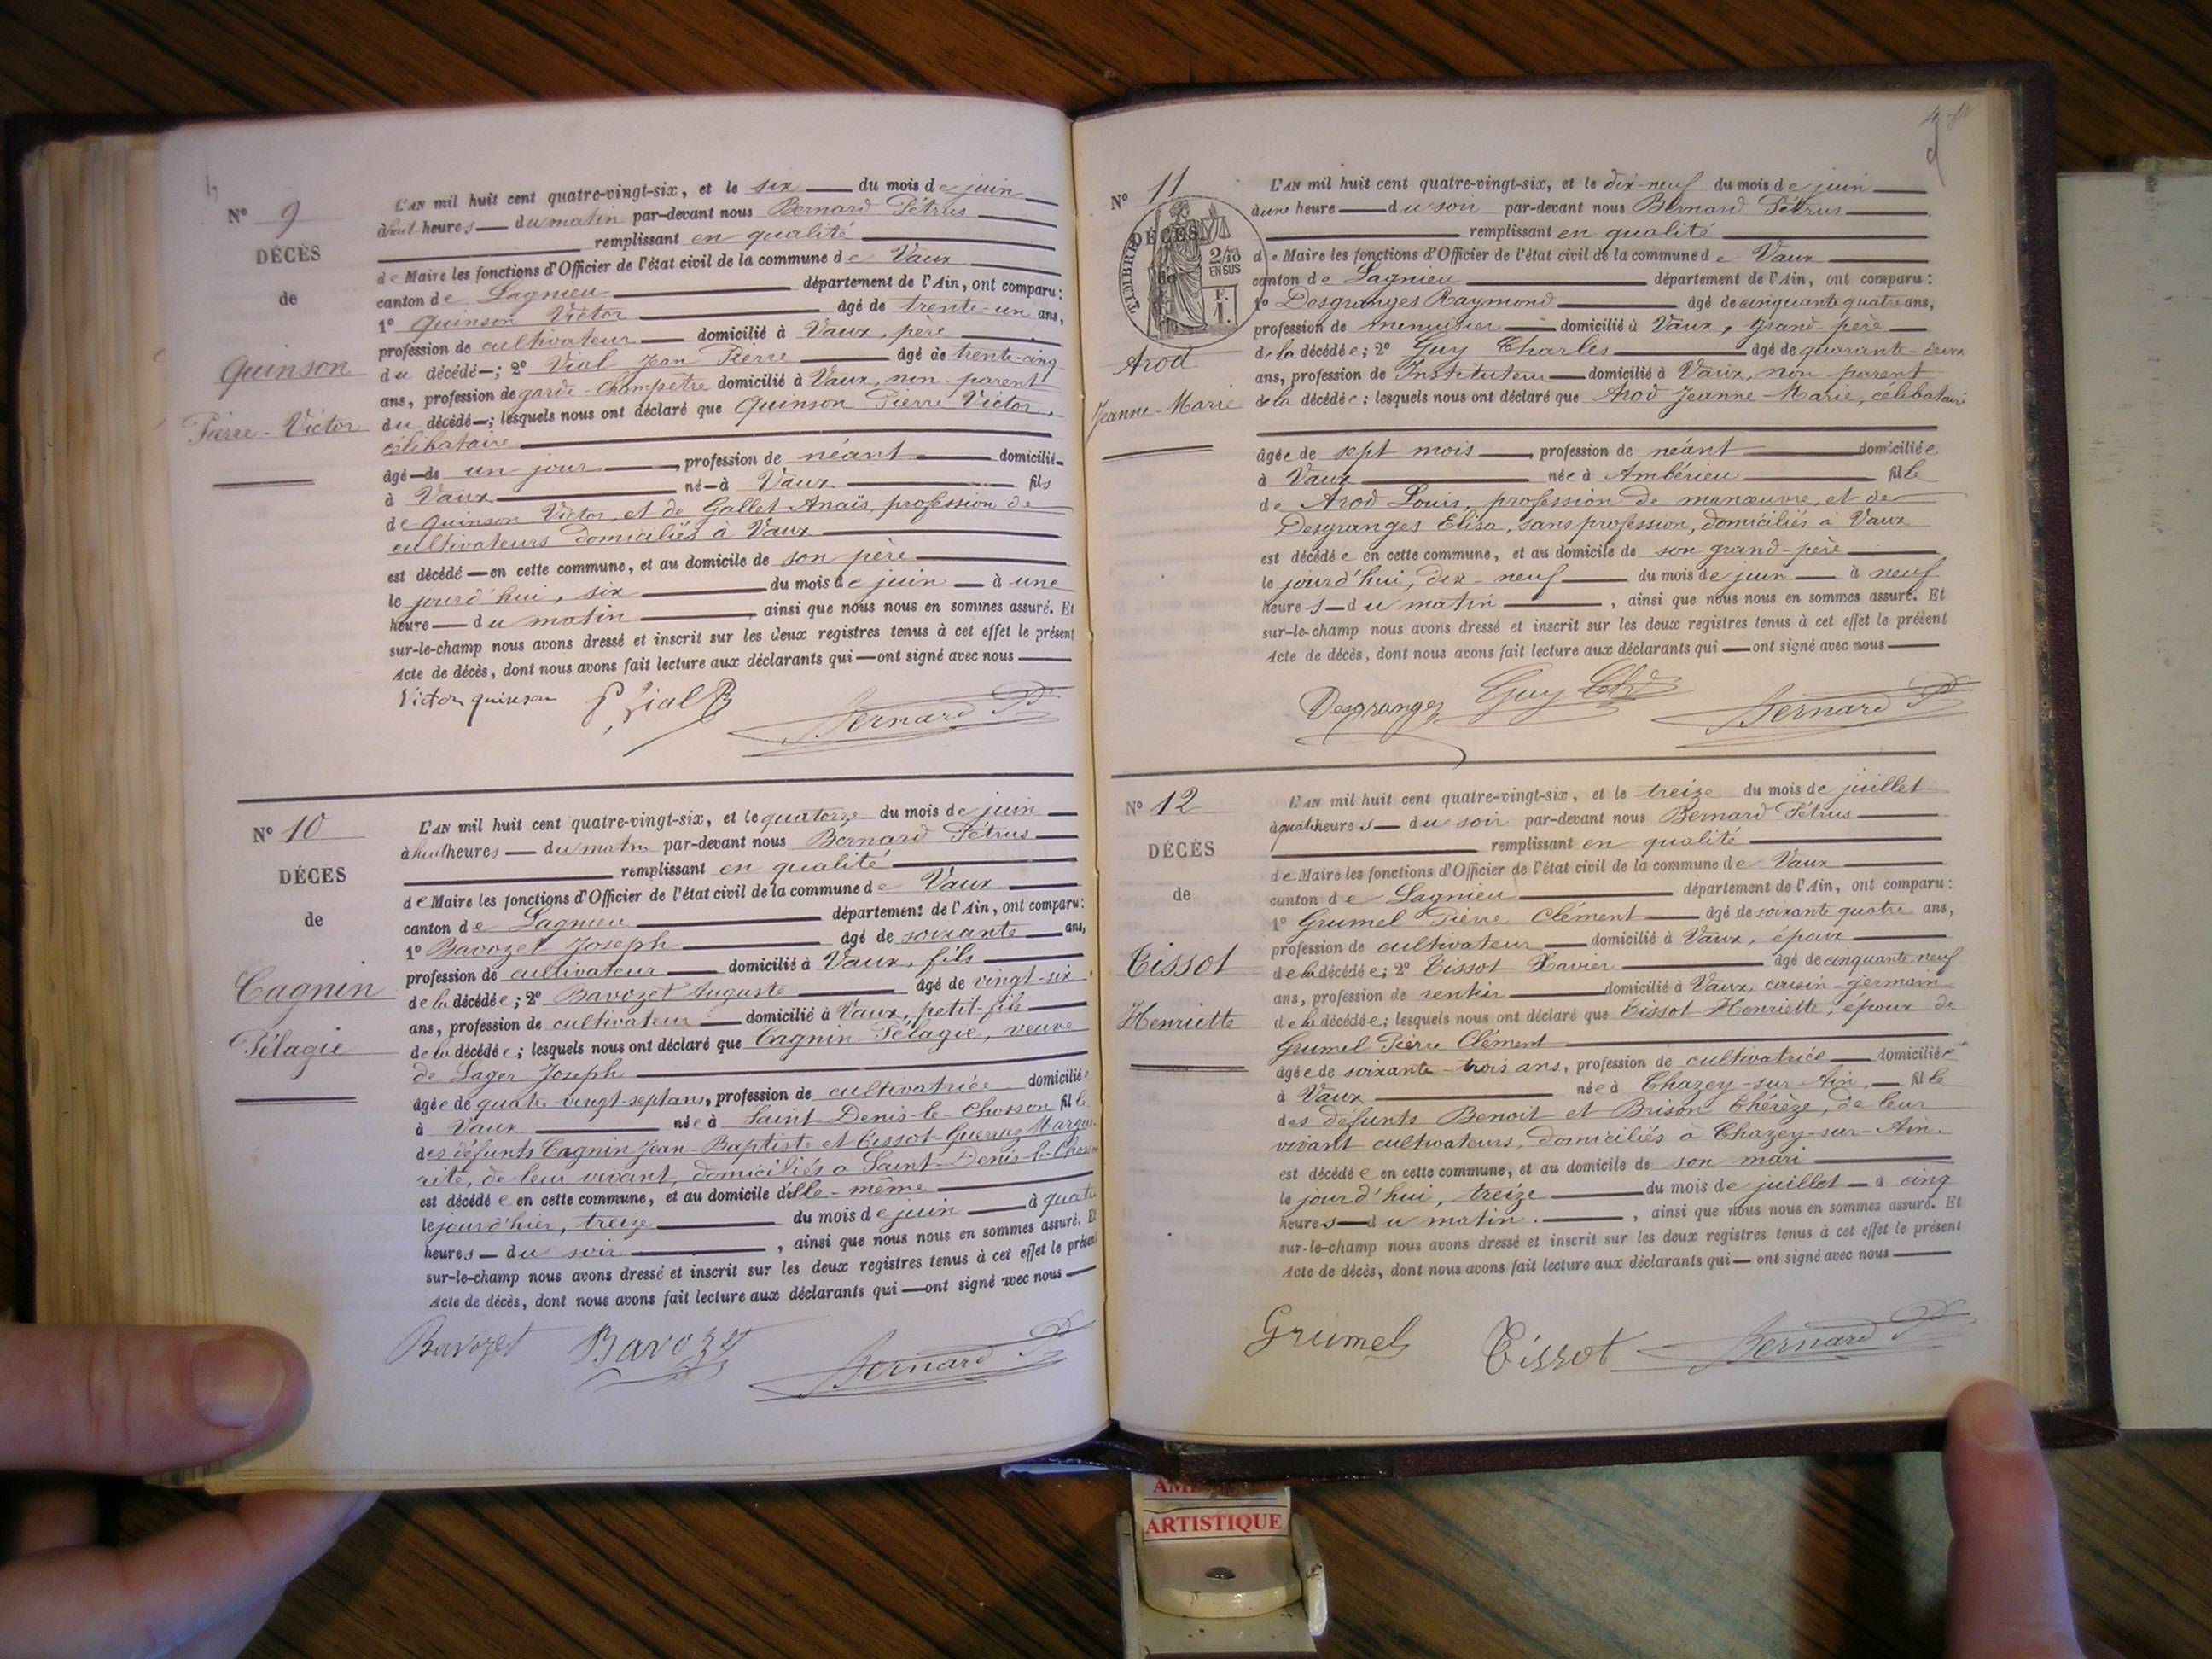 Nº 9
DÉCÈS
de
Quinson
Pierre-Victor
L'AN mil huit cent quatre-vingt-six, et le six du mois de juin
heures du matin par-devant nous Bernard Pétrus
remplissant en qualité
de Maire les fonctions d'Officier de l'état civil de la commune de Vaux
canton de Lagnieu département de l'Ain, ont comparu:
1º Quinson Victor âgé de trente-un ans,
profession de cultivateur domicilié à Vaux, père
du décédé; 2º Vial Jean Pierre âgé de trente-cinq
ans, profession de garde-champêtre domicilié à Vaux, non parent
du décédé; lesquels nous ont déclaré que Quinson Pierre Victor,
célibataire
âgé de un jour, profession de néant domicilié
à Vaux né à Vaux fils
de Quinson Victor, et de Gallet Anaïs, profession de
cultivateurs domiciliés à Vaux
est décédé en cette commune, et au domicile de son père
le jourd'hui, six du mois de juin à une
heure du matin, ainsi que nous nous en sommes assuré. Et
sur-le-champ nous avons dressé et inscrit sur les deux registres tenus à cet effet le présent
Acte de décès, dont nous avons fait lecture aux déclarants qui ont signé avec nous
Victor quinson Vial Bernard P
Nº 10
DÉCÈS
de
Cagnin
Pélagie
L'AN mil huit cent quatre-vingt-six, et le quatorze du mois de juin
à huit heures du matin par-devant nous Bernard Pétrus
remplissant en qualité
de Maire les fonctions d'Officier de l'état civil de la commune de Vaux
canton de Lagnieu département de l'Ain, ont comparu:
1º Bavozet Joseph âgé de soixante ans,
profession de cultivateur domicilié à Vaux, fils
de la décédée; 2º Bavozet Auguste âgé de vingt-six
ans, profession de cultivateur domicilié à Vaux, petit-fils
de la décédée; lesquels nous ont déclaré que Cagnin Pélagie, veuve
de Lager Joseph
âgée de quatre-vingt-sept ans, profession de cultivatrice domiciliée
à Vaux née à Saint-Denis-le-Chosson fille
des défunts Cagnin Jean-Baptiste et Tissot-Guerraz Margue
rite, de leur vivant, domiciliés à Saint-Denis-le-Chosson
est décédée en cette commune, et au domicile d'elle-même
le jourd'hier, treize du mois de juin à quatre
heures du soir, ainsi que nous nous en sommes assuré. Et
sur-le-champ nous avons dressé et inscrit sur les deux registres tenus à cet effet le présent
Acte de décès, dont nous avons fait lecture aux déclarants qui ont signé avec nous
Bavozet Bavozet Bernard P
Nº 11
DÉCÈS
de
TIMBRE
2/10
EN SUS
F.
1.
Arod
Jeanne-Marie
L'AN mil huit cent quatre-vingt-six, et le dix-neuf du mois de juin
à une heure du soir par-devant nous Bernard Pétrus
remplissant en qualité
de Maire les fonctions d'Officier de l'état civil de la commune de Vaux
canton de Lagnieu département de l'Ain, ont comparu:
1º Desgranges Raymond âgé de cinquante quatre ans,
profession de menuisier domicilié à Vaux, grand-père
de la décédée; 2º Guy Charles âgé de quarante-deux
ans, profession de Instituteur domicilié à Vaux, non parent
de la décédée; lesquels nous ont déclaré que Arod Jeanne-Marie, célibataire
âgée de sept mois, profession de néant domiciliée
à Vaux née à Ambérieu fille
de Arod Louis, profession de manœuvre, et de
Desgranges Elisa, sans profession, domiciliés à Vaux
est décédée en cette commune, et au domicile de son grand-père
le jourd'hui, dix-neuf du mois de juin à neuf
heures du matin, ainsi que nous nous en sommes assuré. Et
sur-le-champ nous avons dressé et inscrit sur les deux registres tenus à cet effet le présent
Acte de décès, dont nous avons fait lecture aux déclarants qui ont signé avec nous
Desgranges Guy Ch Bernard P
Nº 12
DÉCÈS
de
Tissot
Henriette
L'AN mil huit cent quatre-vingt-six, et le treize du mois de juillet
à quatre heures du soir par-devant nous Bernard Pétrus
remplissant en qualité
de Maire les fonctions d'Officier de l'état civil de la commune de Vaux
canton de Lagnieu département de l'Ain, ont comparu:
1º Grumel Pierre Clément âgé de soixante quatre ans,
profession de cultivateur domicilié à Vaux, époux
de la décédée; 2º Tissot Xavier âgé de cinquante neuf
ans, profession de rentier domicilié à Vaux, cousin-germain
de la décédée; lesquels nous ont déclaré que Tissot Henriette, époux de
Grumel Pierre Clément
âgée de soixante-trois ans, profession de cultivatrice domiciliée
à Vaux née à Chazey-sur-Ain, fille
des défunts Benoit et Brison Thérèze, de leur
vivant cultivateurs, domiciliés à Chazey-sur-Ain.
est décédée en cette commune, et au domicile de son mari
le jourd'hui, treize du mois de juillet à cinq
heures du matin, ainsi que nous nous en sommes assuré. Et
sur-le-champ nous avons dressé et inscrit sur les deux registres tenus à cet effet le présent
Acte de décès, dont nous avons fait lecture aux déclarants qui ont signé avec nous
Grumel Tissot Bernard P
ARTISTIQUE